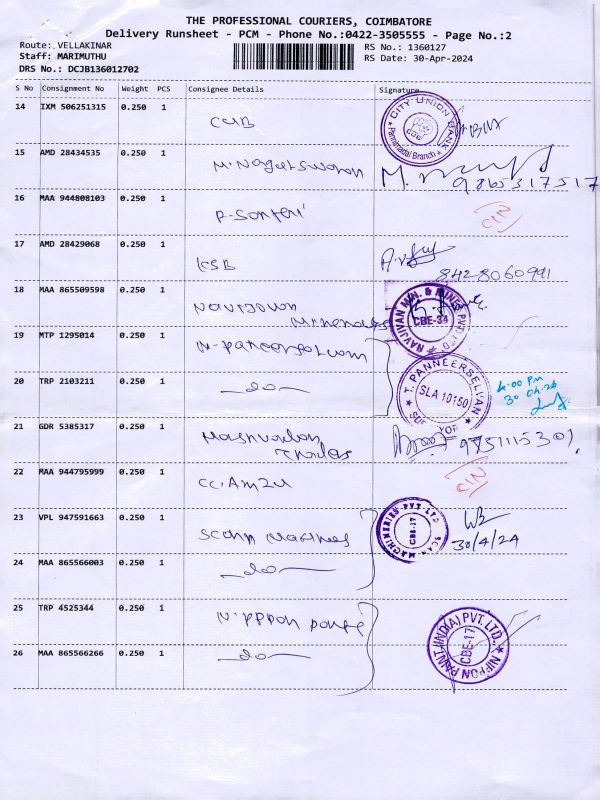 THE PROFESSIONAL COURIERS, COIMBATORE
Delivery Runsheet - PCM - Phone No.:0422-3505555 - Page No.:2
Route: VELLAKINAR
Staff: MARIMUTHU
DRS No.: DCJB136012702
RS No.: 1360127
RS Date: 30-Apr-2024
S No Consignment No Weight PCS Consignee Details Signature
14 IXM 506251315 0.250 1 CUB
CITY UNION BANK
15 AMD 28434535 0.250 1
9865317517
16 MAA 944808103 0.250 1
17 AMD 28429068 0.250 1 KSB
8428060991
18 MAA 865509598 0.250 1
NAVJIVAN MIN. & MINES PVT. LTD
CBE-34
19 MTP 1295014 0.250 1
20 TRP 2103211 0.250 1 -do-
T. PANNEERSELVAN
SLA 10150
SURVEYOR
4:00 PM
30 04 24
21 GDR 5385317 0.250 1
22 MAA 944795999 0.250 1
23 VPL 947591663 0.250 1
SCAN MACHINERIES PVT LTD
CBE-17
30/4/24
24 MAA 865566003 0.250 1 -do-
25 TRP 4525344 0.250 1
NIPPON PAINT (INDIA) PVT. LTD.,
CBE-17
26 MAA 865566266 0.250 1 -do-